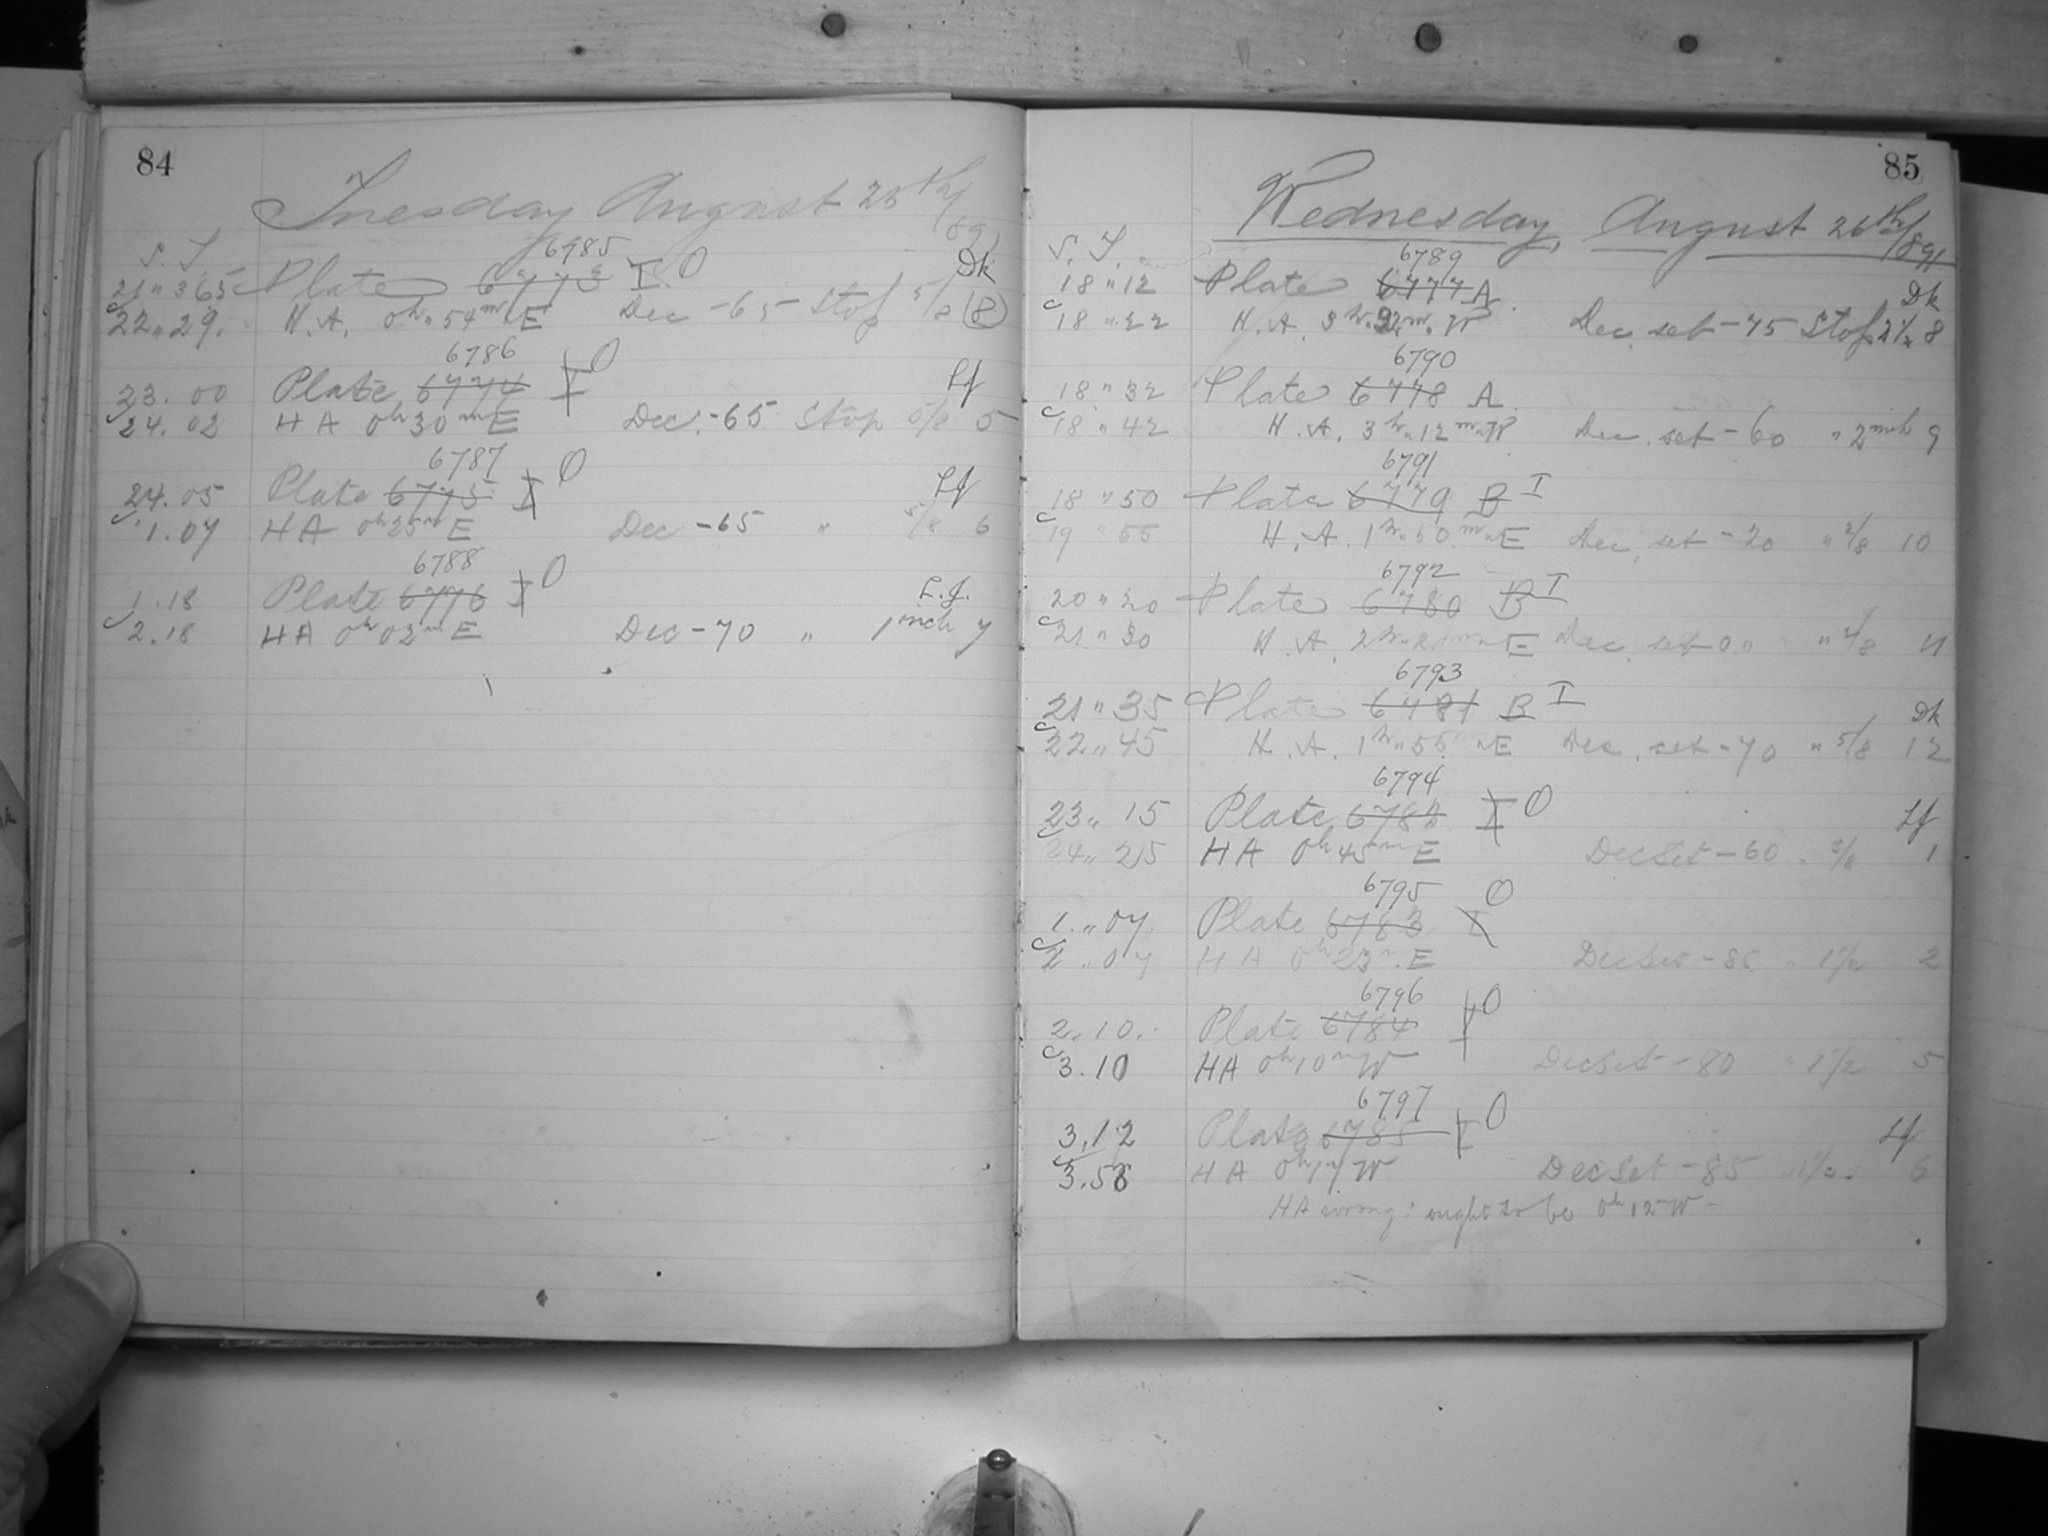 84
Tuesday August 25th/91
S. T. 6785
21 " 36 Plate 6773 I O Dk
22 " 29. H. A. 0h " 54m E Dec -65 Stop 5/8 (8)
6786
23. 00 Plate 6774 I O Lf
24. 02 HA 0h 30m E Dec. -65 Stop 5/8 5
6787
24. 05 Plate 6775 I O Lf
1. 07 HA 0h 25m E Dec -65 " 5/8 6
6788
1. 18 Plate 6776 I O L.f.
2. 18 HA 0h 02m E Dec -70 " 1 inch 7
85
Wednesday, August 26th/891
S. T. 6789
18 " 12 Plate 6777 A Dk
18 " 22 H. A. 3h 32m " W Dec. set -75 Stop 2 1/2 8
6790
18 " 32 Plate 6778 A
18 " 42 H. A. 3h " 12m " W Dec. set -60 " 2 inch 9
6791
18 " 50 Plate 6779 B I
19 " 55 H. A. 1h " 50m " E Dec. set -20 " 2/8 10
6792
20 " 20 Plate 6780 B I
21 " 30 H. A. 2h E Dec. set 0.0 " 2/8 11
6793
21 " 35 Plate 6781 B I Dk
22 " 45 H. A. 1h " 55m " E Dec. set -70 " 5/8 12
6794
23 " 15 Plate 6782 I O Lf
24 " 25 HA 0h 45m E Dec Set -60 " 3/8 1
6795
1. " 07 Plate 6783 I O
2 " 07 HA 0h 23m. E Dec Set -85 " 1 1/2 2
6796
2. 10. Plate 6784 I O
3. 10 HA 0h 10m W Dec Set -80 " 1 1/2 5
6797
3. 12 Plate 6785 I O Lf
3. 58 HA 0h 17 W Dec Set -85 " 1 1/2. 6
HA wrong: ought to be 0h 12m W -